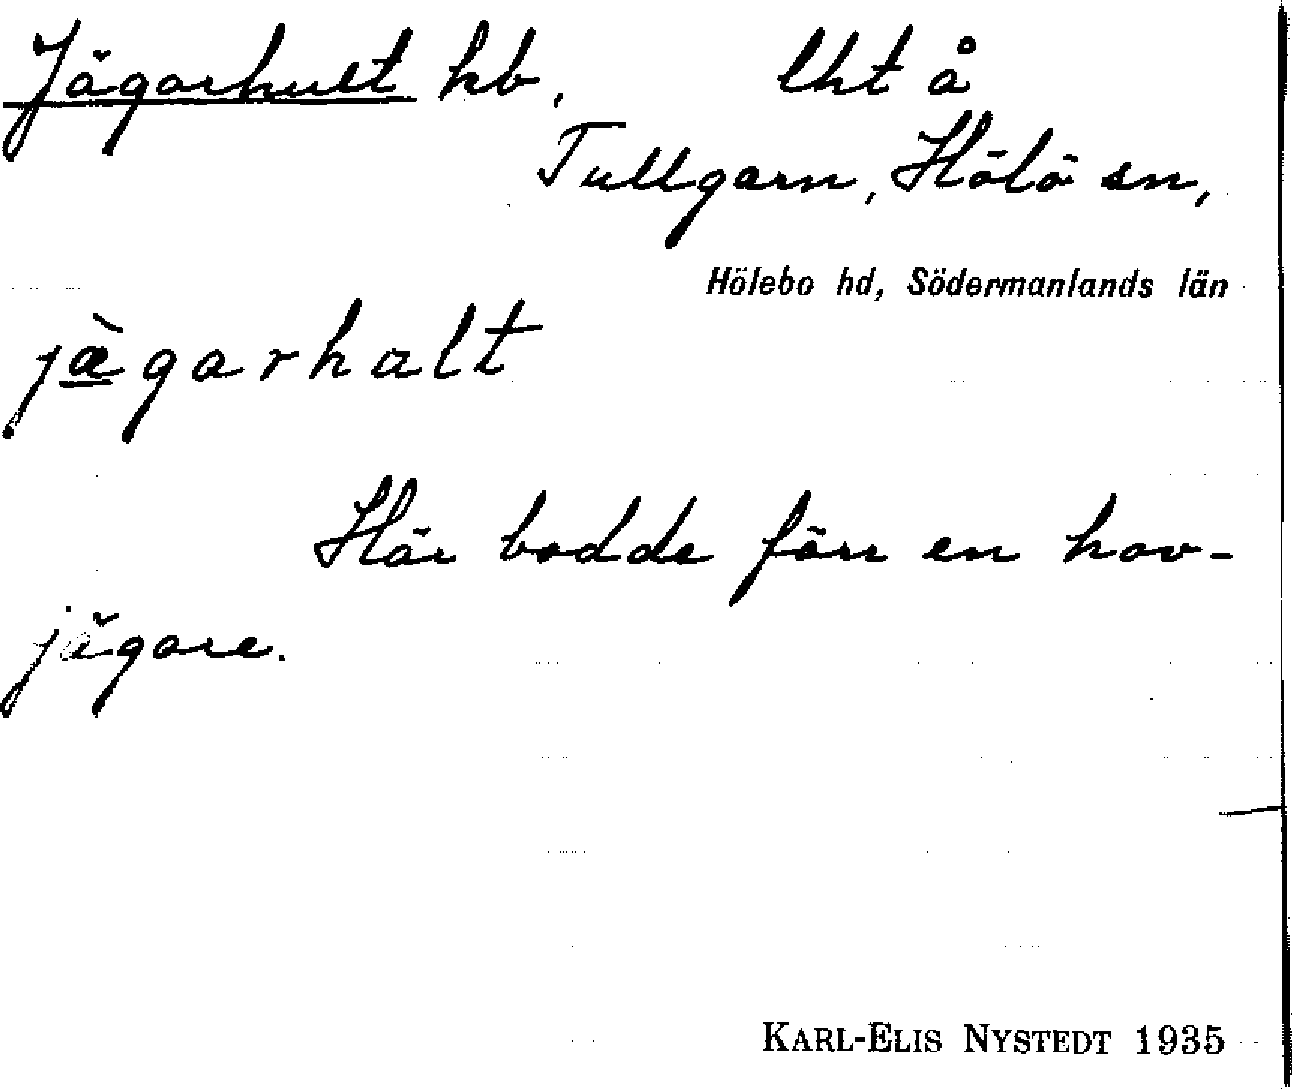 Jägarhult hb, lht å
Tullgarn, Hölö sn,
Hölebo hd, Södermanlands län
jæ̀garhalt
Här bodde förr en hov-
jägare.
KARL-ELIS NYSTEDT 1935